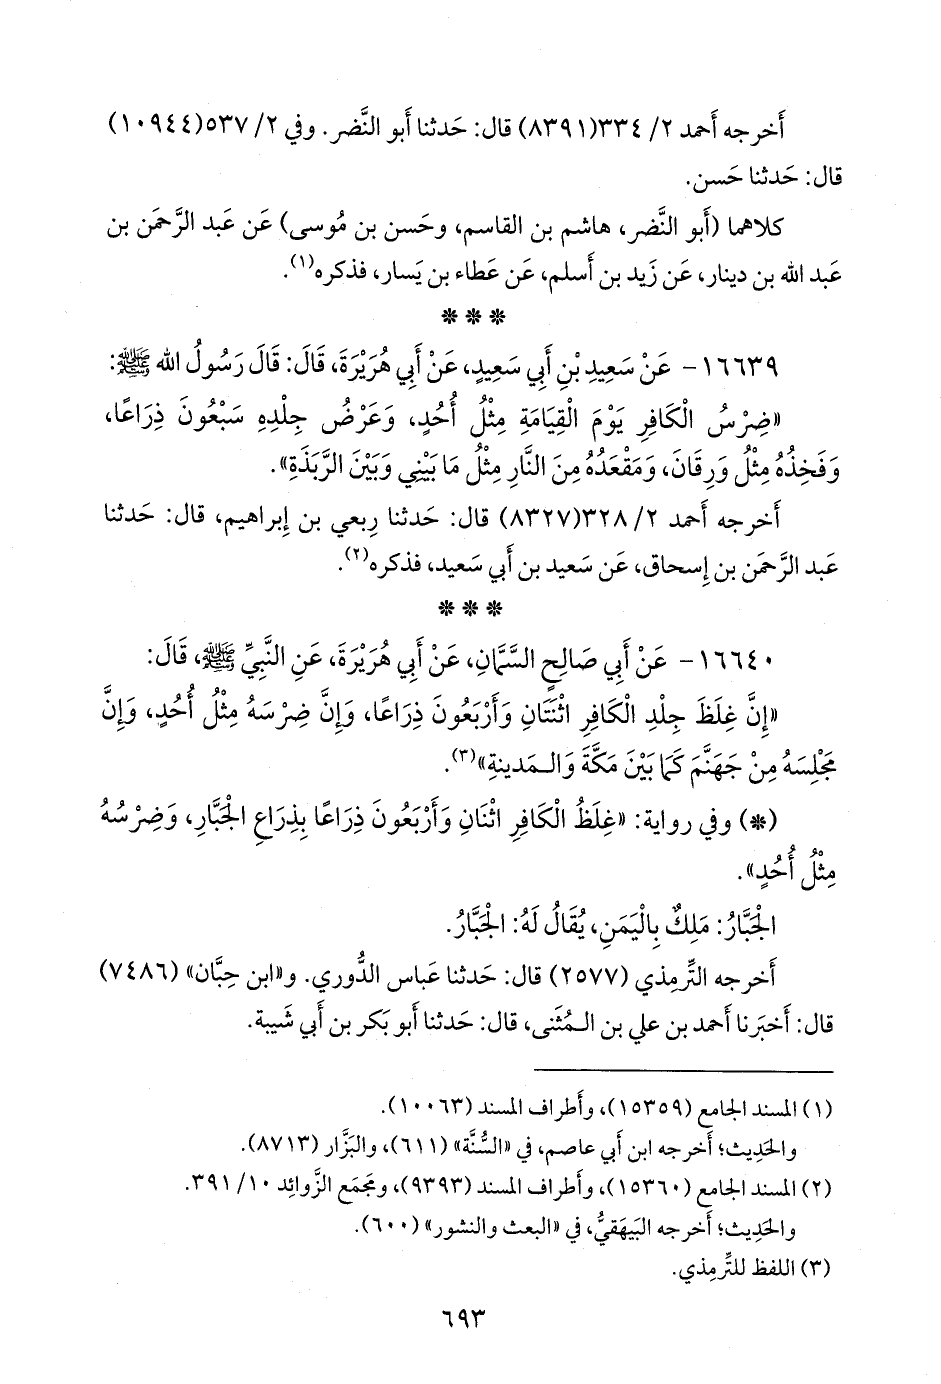 أَخرجه أَحمد ٢/ ٣٣٤(٨٣٩١) قال: حَدثنا أَبو النَّضر. وفي ٢/ ٥٣٧(١٠٩٤٤)
قال: حَدثنا حَسن.
كلاهما (أَبو النَّضر، هاشم بن القاسم، وحَسن بن مُوسى) عَن عَبد الرَّحمَن بن
عَبد الله بن دينار، عَن زَيد بن أَسلم، عَن عَطاء بن يَسار، فذكره(١).
* * *
١٦٦٣٩- عَنْ سَعِيدِ بْنِ أَبِي سَعِيدٍ، عَنْ أَبِي هُرَيْرَةَ، قَالَ: قَالَ رَسُولُ الله ﷺ:
«ضِرْسُ الْكَافِرِ يَوْمَ الْقِيَامَةِ مِثْلُ أُحُدٍ، وَعَرْضُ جِلْدِهِ سَبْعُونَ ذِرَاعًا،
وَفَخِذُهُ مِثْلُ وَرِقَانَ، وَمَقْعَدُهُ مِنَ النَّارِ مِثْلُ مَا بَيْنِي وَبَيْنَ الرَّبَذَةِ».
أَخرجه أَحمد ٢/ ٣٢٨(٨٣٢٧) قال: حَدثنا رِبعي بن إِبراهيم، قال: حَدثنا
عَبد الرَّحمَن بن إِسحاق، عَن سَعيد بن أَبي سَعيد، فذكره(٢).
* * *
١٦٦٤٠- عَنْ أَبِي صَالِحٍ السَّمَّانِ، عَنْ أَبِي هُرَيْرَةَ، عَنِ النَّبِيِّ ﷺ، قَالَ:
«إِنَّ غِلَظَ جِلْدِ الْكَافِرِ اثْنَتَانِ وَأَرْبَعُونَ ذِرَاعًا، وَإِنَّ ضِرْسَهُ مِثْلُ أُحُدٍ، وَإِنَّ
مَجْلِسَهُ مِنْ جَهَنَّمَ كَمَا بَيْنَ مَكَّةَ وَالـمَدينةِ»(٣).
(*) وفي رواية: «غِلَظُ الْكَافِرِ اثْنَانِ وَأَرْبَعُونَ ذِرَاعًا بِذِرَاعِ الْجَبَّارِ، وَضِرْسُهُ
مِثْلُ أُحُدٍ».
الْجَبَّارُ: مَلِكٌ بِالْيَمَنِ، يُقَالُ لَهُ: الْجَبَّارُ.
أَخرجه التِّرمِذي (٢٥٧٧) قال: حَدثنا عَباس الدُّوري. و«ابن حِبَّان» (٧٤٨٦)
قال: أَخبَرنا أَحمد بن علي بن الـمُثنى، قال: حَدثنا أَبو بَكر بن أَبي شَيبة.
(١) المسند الجامع (١٥٣٥٩)، وأَطراف المسند (١٠٠٦٣).
والحَدِيث؛ أَخرجه ابن أَبي عاصم، في «السُّنَّة» (٦١١)، والبَزَّار (٨٧١٣).
(٢) المسند الجامع (١٥٣٦٠)، وأَطراف المسند (٩٣٩٣)، ومَجمَع الزَّوائِد ١٠/ ٣٩١.
والحَدِيث؛ أَخرجه البَيهَقيُّ، في «البعث والنشور» (٦٠٠).
(٣) اللفظ للتِّرمِذي.
٦٩٣